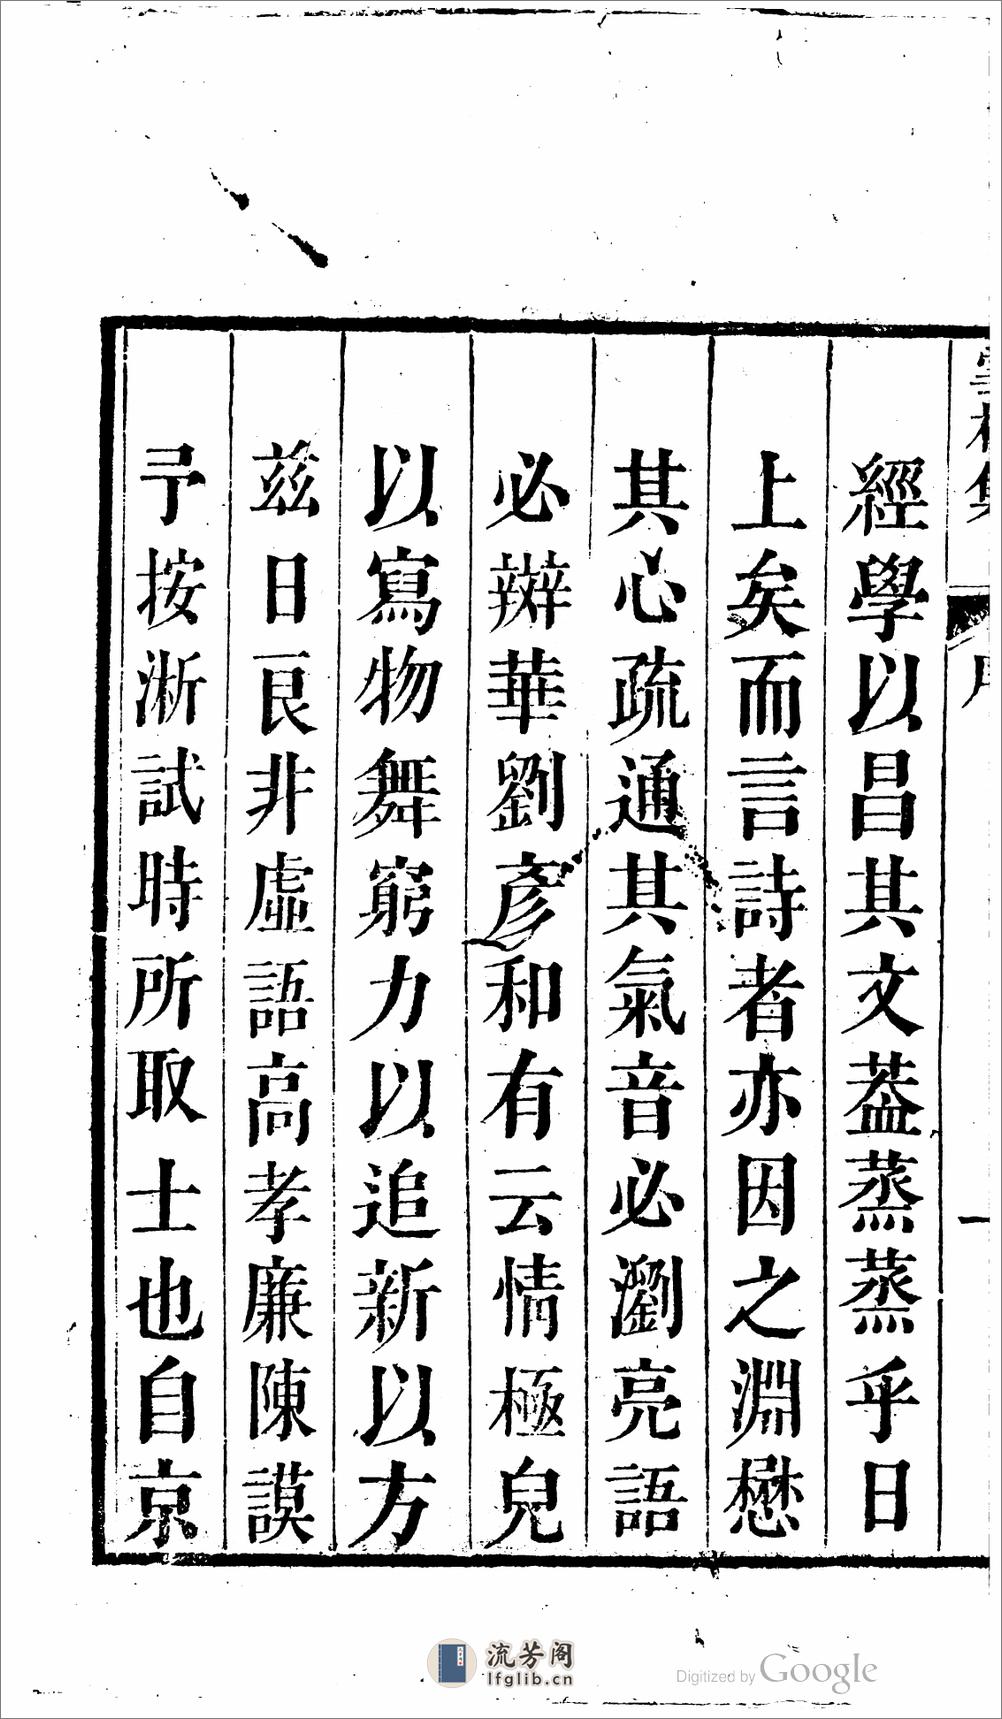 集
一
經學以昌其文葢蒸蒸乎日
上矣而言詩者亦因之淵懋
其心疏通其氣音必瀏亮語
必辦華劉彥和有云情極皃
以寫物舞窮力以追新以方
兹日良非虛語高孝廉陳謨
予按淅試時所取士也自京
流芳阁
lfglib.cn
Digitized by Google